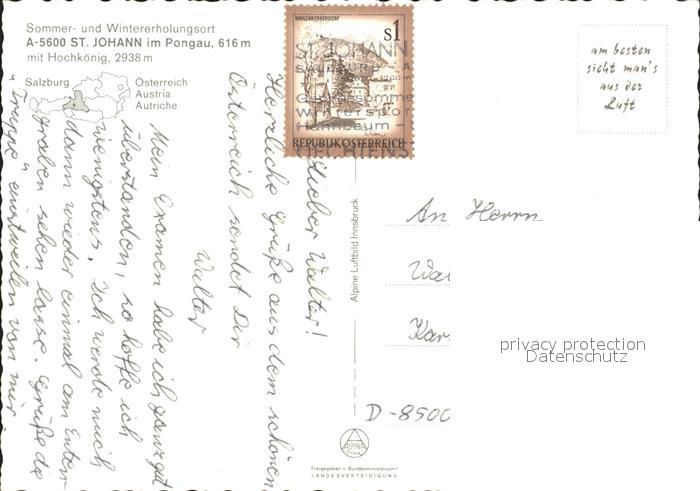 Sommer- und Wintererholungsort
A-5600 ST. JOHANN im Pongau, 616 m
mit Hochkönig, 2938 m
Salzburg
Österreich
Austria
Autriche
KAHLENBERGERDORF
S1
REPUBLIK ÖSTERREICH
ST. JOHANN
am besten
sieht man's
aus der
Luft
Lieber Walter!
Herzliche Grüße aus dem schönen
Österreich sendet Dir
Walter
Mein Examen habe ich ganz gut
überstanden, so hoffe ich
wenigstens. Ich werde mich
dann wieder einmal am Enten-
graben sehen lasse. Grüße die
"Treppe" einstweilen von mir
Alpine Luftbild Innsbruck
An Herrn
D-8500
ALPINE
Freigegeben v. Bundesministerium f.
LANDESVERTEIDIGUNG
privacy protection
Datenschutz